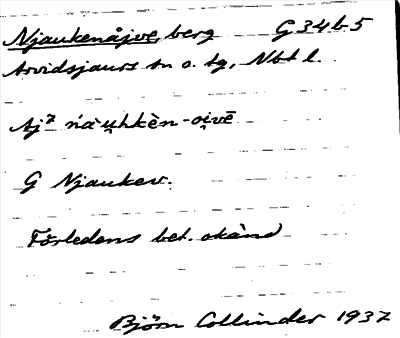 Njaukenåjve, berg G34b5
Arvidsjaurs sn o. tg, Nbt l.
Aj² ńà̀u̬hkèn-oi̭vē
G Njaukev.
Förledens bet. okänd
Björn Collinder 1937